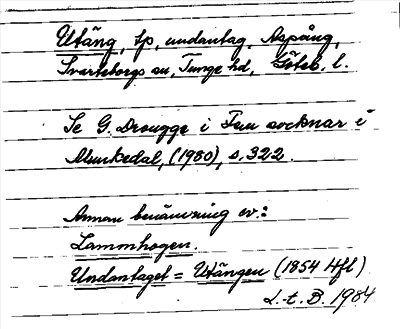 Utäng, tp, undantag, Aspång,
Svarteborgs sn, Tunge hd, Göteb. l.
Se G. Drougge i Fem socknar i
Munkedal, (1980), s. 322.
Annan benämning ev.:
Lamonhogen.
Undantaget = Utängen (1854 Hfl)
L. t. B. 1984